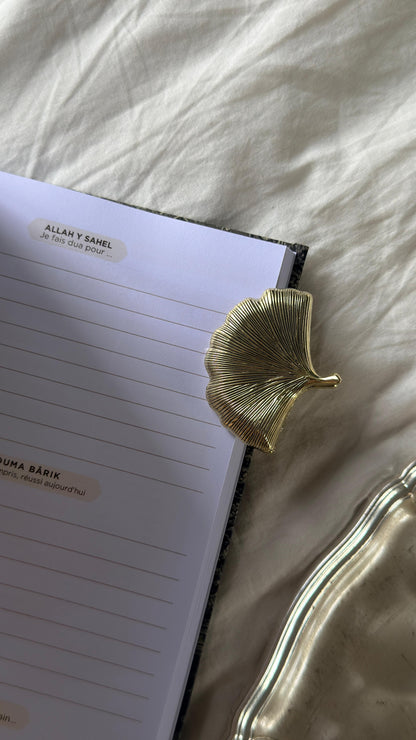 ALLAH Y SAHEL
Je fais dua pour ...
OUMA BÂRIK
mpris, réussi aujourd'hui
ain...